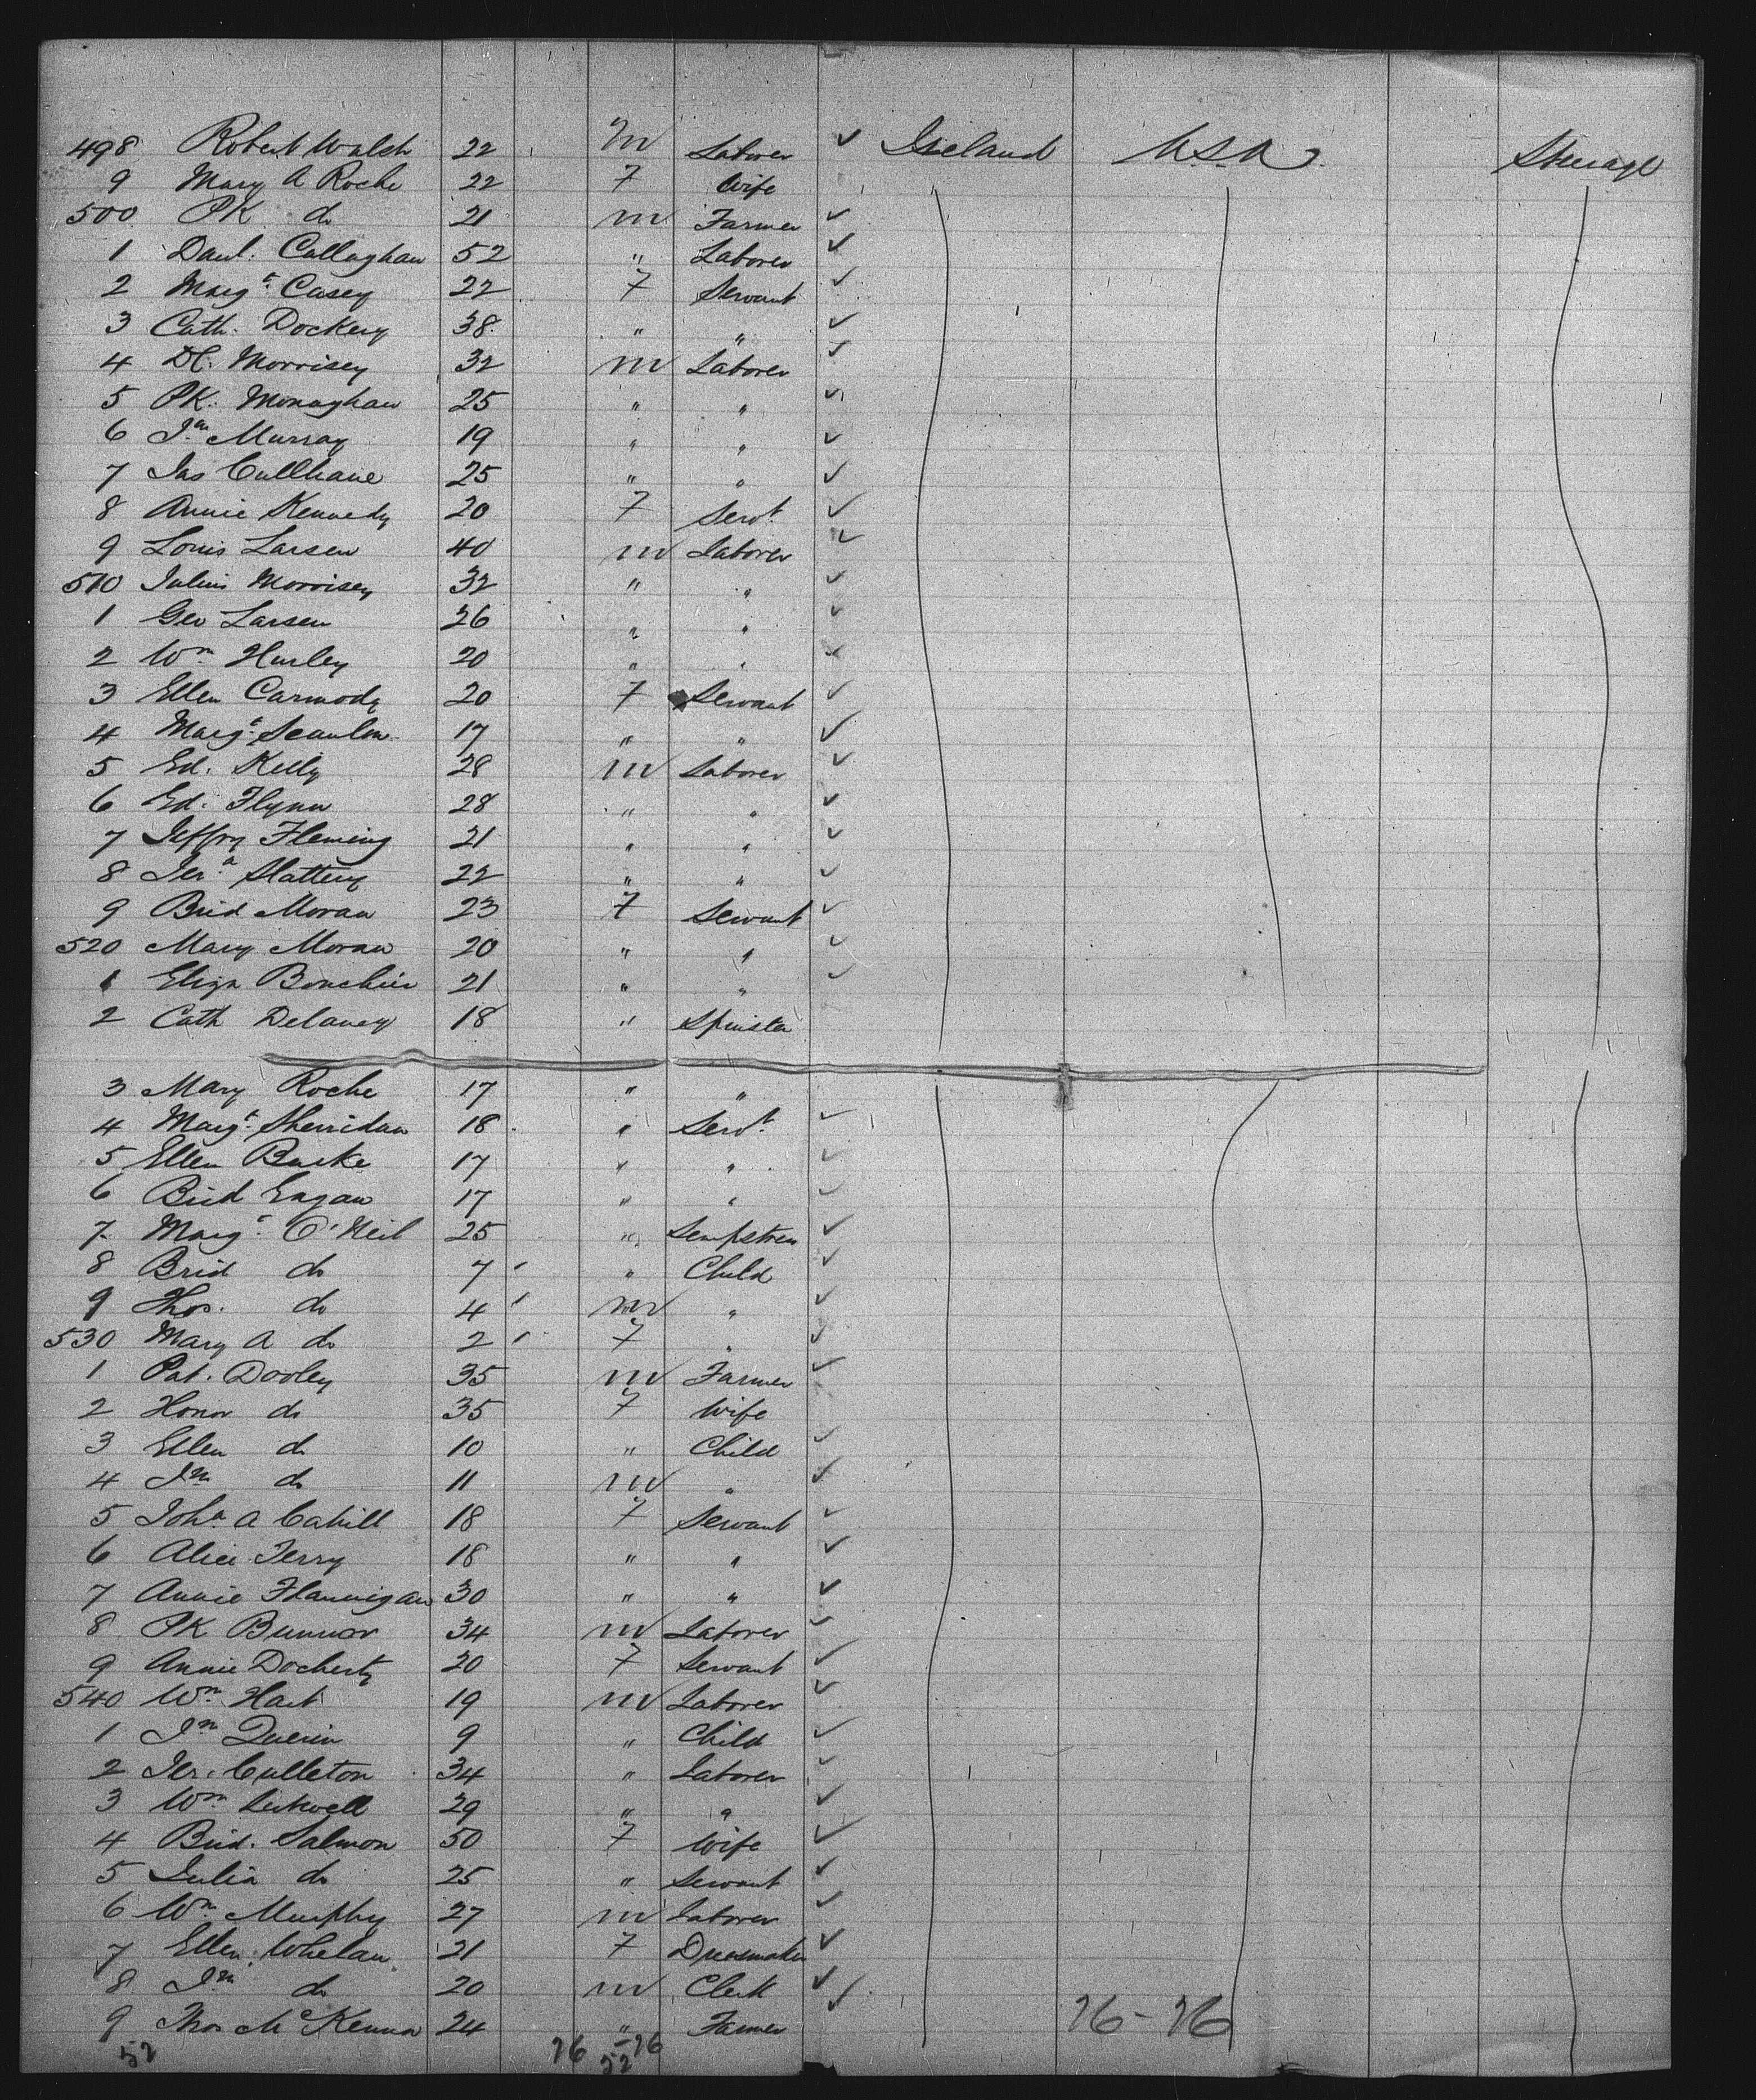 498 Robert Walsh 22 m Laborer ✓ Ireland USA Steerage
9 Mary A Roche 22 F Wife
500 PK do 21 m Farmer ✓
1 Danl. Callaghan 52 " Laborer ✓
2 Margt. Casey 22 F Servant ✓
3 Cath. Dockery 38 " " ✓
4 Morrisey 32 m Laborer ✓
5 PK. Monaghan 25 " " ✓
6 Murray 19 " " ✓
7 Jas Cullhane 25 " " ✓
8 Annie Kennedy 20 F Servt. ✓
9 Louis Larsen 40 m Laborer ✓
510 Julius Morrisey 32 " " ✓
1 Geo Larsen 26 " " ✓
2 Wm. Hurley 20 " " ✓
3 Ellen Carmody 20 F Servant ✓
4 Margt. Scanlon 17 " " ✓
5 Ed. Kelly 28 m Laborer ✓
6 Ed. Flynn 28 " " ✓
7 Jeffry Fleming 21 " " ✓
8 Jera. Slattery 22 " " ✓
9 Brid Moran 23 F Servant ✓
520 Mary Moran 20 " " ✓
1 Eliza Bouchier 21 " " ✓
2 Cath Delaney 18 " Spinster
3 Mary Roche 17 " "
4 Margt. Sherridan 18 " Servt. ✓
5 Ellen Burke 17 " " ✓
6 Brid Eagan 17 " " ✓
7 Margt. O'Neil 25 " Sempstress ✓
8 Brid do 7 " Child ✓
9 Thos. do 4 m " ✓
530 Mary A do 2 F " ✓
1 Pat. Dooley 35 m Farmer ✓
2 Honor do 35 F Wife
3 Ellen do 10 " Child ✓
4 Jn. do 11 m " ✓
5 Joha. A Cahill 18 F Servant ✓
6 Alice Terry 18 " " ✓
7 Annie Flannigan 30 " " ✓
8 PK 34 m Laborer ✓
9 Annie Docherty 20 F Servant ✓
540 Wm. Hart 19 m Laborer ✓
1 Jn. 9 " Child ✓
2 Jer. Culleton 34 " Laborer ✓
3 Wm. 29 " " ✓
4 Brid. Salmon 50 F Wife ✓
5 Julia do 25 " Servant ✓
6 Wm. Murphy 27 m Laborer ✓
7 Ellen Whelan 21 F Dressmaker ✓
8 Jn. do 20 m Clerk ✓
9 Thos McKenna 24 " Farmer ✓
26-26
52 26 -26
52